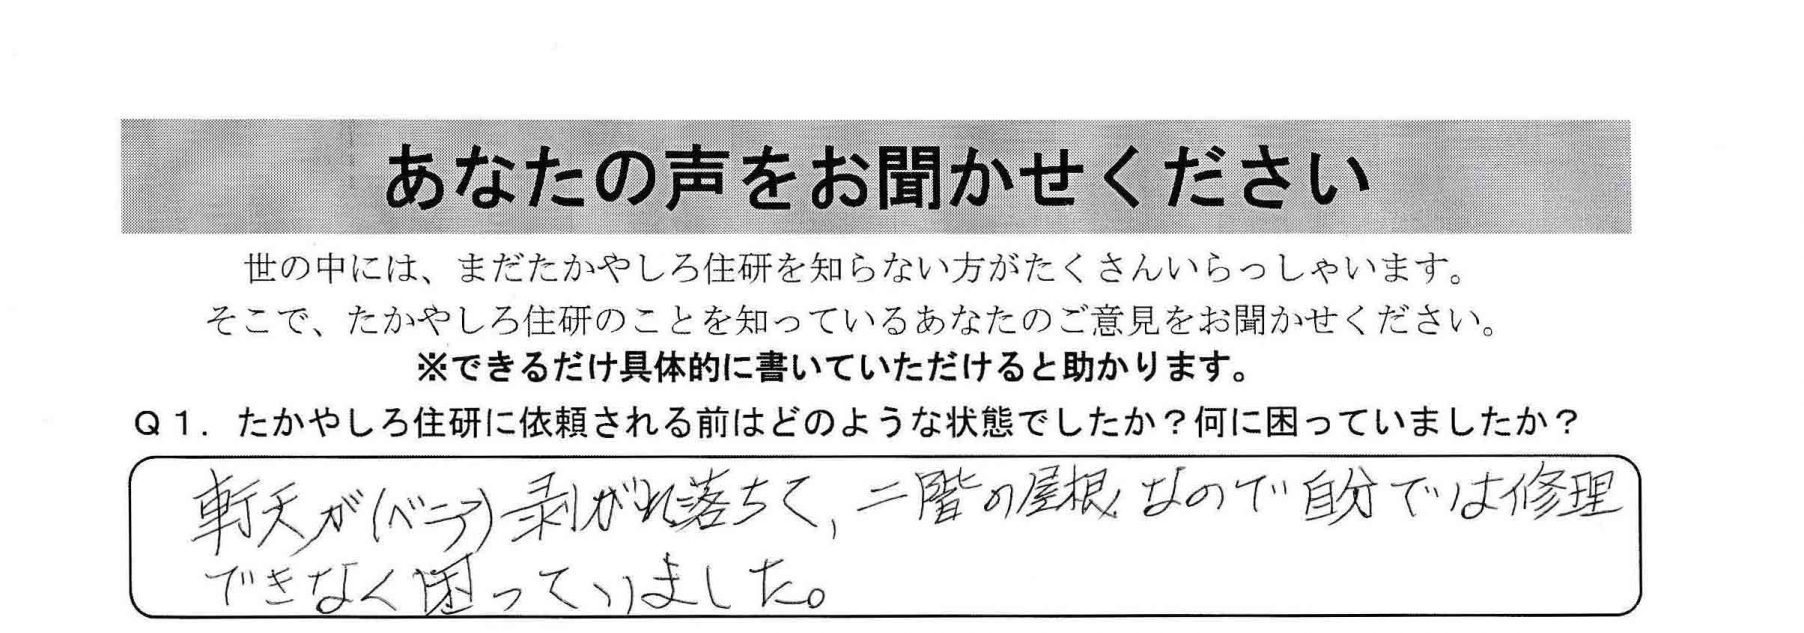 あなたの声をお聞かせください
世の中には、まだたかやしろ住研を知らない方がたくさんいらっしゃいます。
そこで、たかやしろ住研のことを知っているあなたのご意見をお聞かせください。
※できるだけ具体的に書いていただけると助かります。
Q1．たかやしろ住研に依頼される前はどのような状態でしたか？何に困っていましたか？
軒天が(ベニア)剥がれ落ちて,二階の屋根なので自分では修理
できなく困っていました。